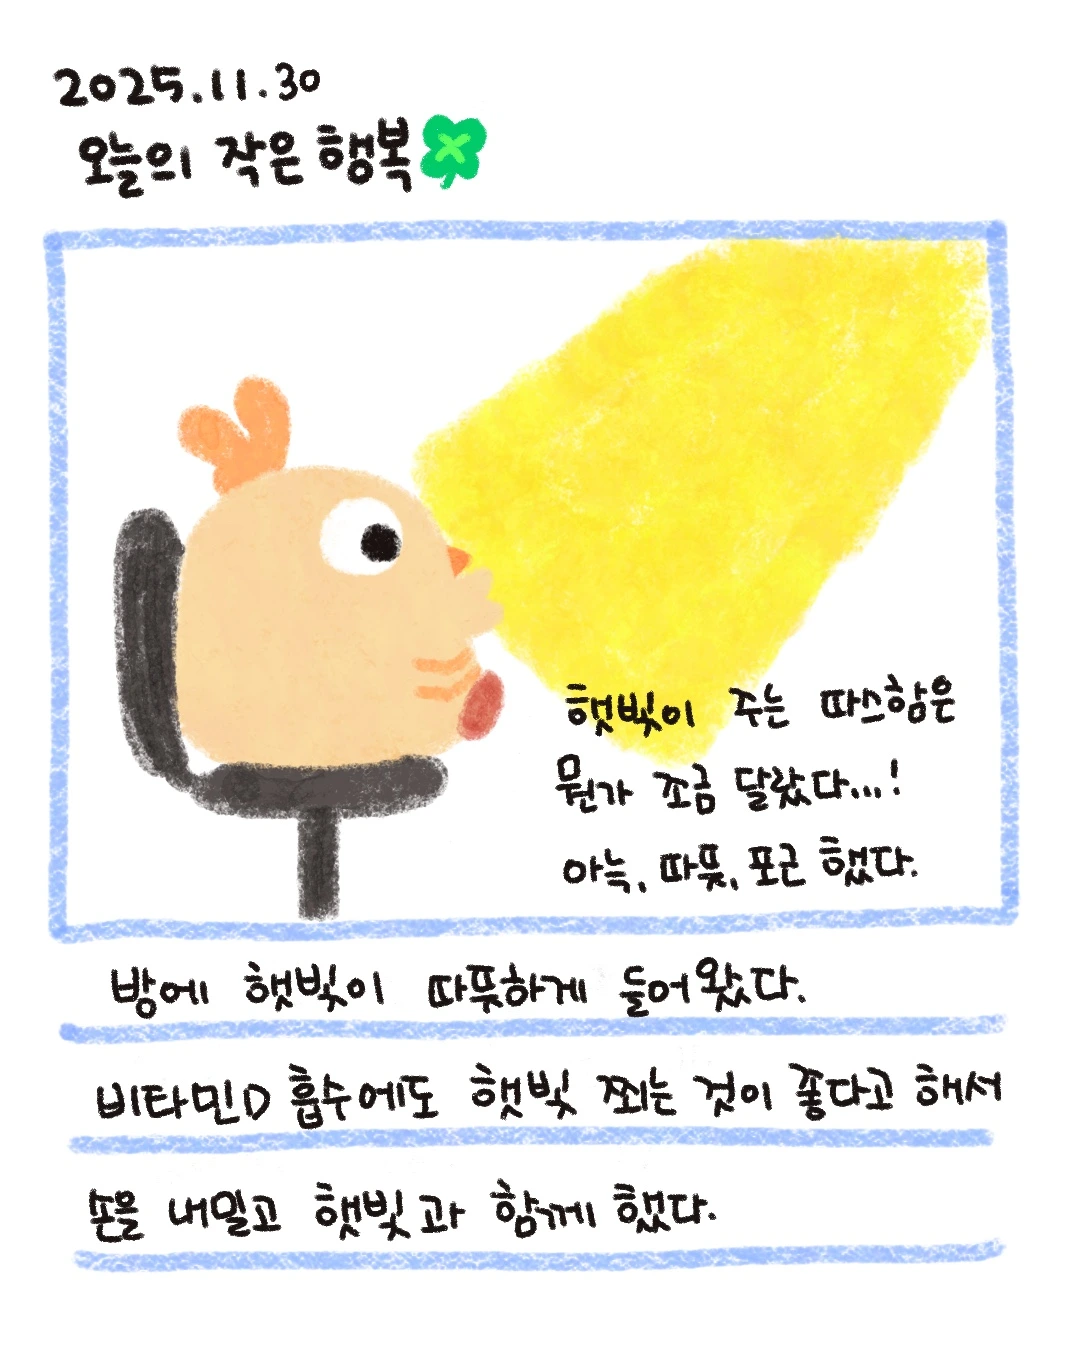 2025.11.30
오늘의 작은 행복
햇빛이 주는 따스함은
뭔가 조금 달랐다...!
아늑, 따뜻, 포근 했다.
방에 햇빛이 따뜻하게 들어왔다.
비타민D 흡수에도 햇빛 쬐는 것이 좋다고 해서
손을 내밀고 햇빛과 함께 했다.